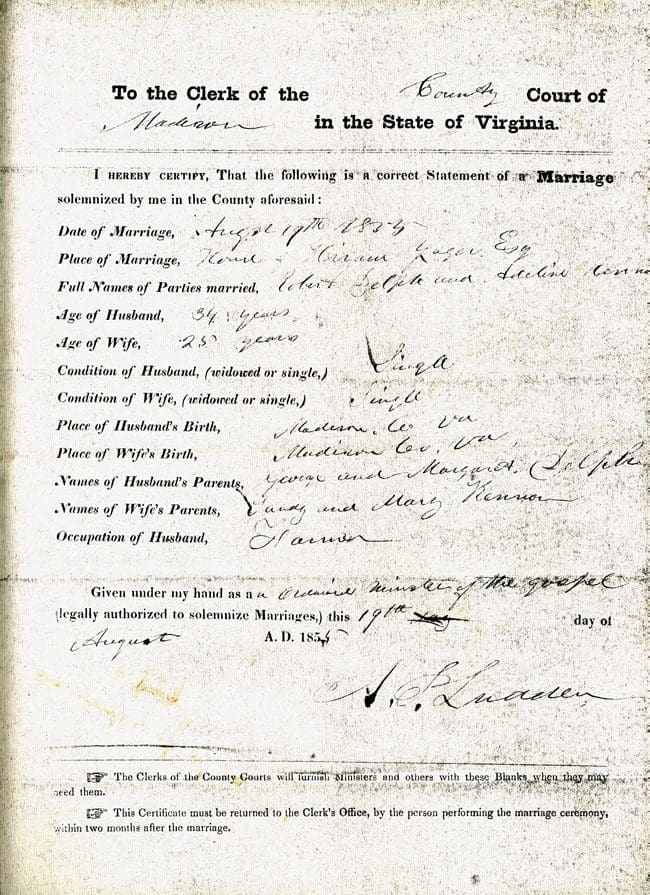 To the Clerk of the County Court of
Madison in the State of Virginia.
I HEREBY CERTIFY, That the following is a correct Statement of a Marriage
solemnized by me in the County aforesaid:
Date of Marriage, August 19th 1855
Place of Marriage, House Hiram Yager Esq
Full Names of Parties married, Robert Delph and Adeline
Age of Husband, 34 years
Age of Wife, 25 years
Condition of Husband, (widowed or single,) Single
Condition of Wife, (widowed or single,) Single
Place of Husband's Birth, Madison Co Va
Place of Wife's Birth, Madison Co. Va.
Names of Husband's Parents, George and Margaret Delph
Names of Wife's Parents, and Mary Kennon
Occupation of Husband, Farmer
Given under my hand as a n ordained minister of the gospel
(legally authorized to solemnize Marriages,) this 19th day of
August A. D. 1855
A. P. Ludden
☞ The Clerks of the County Courts will furnish Ministers and others with these Blanks when they may
need them.
☞ This Certificate must be returned to the Clerk's Office, by the person performing the marriage ceremony,
within two months after the marriage.